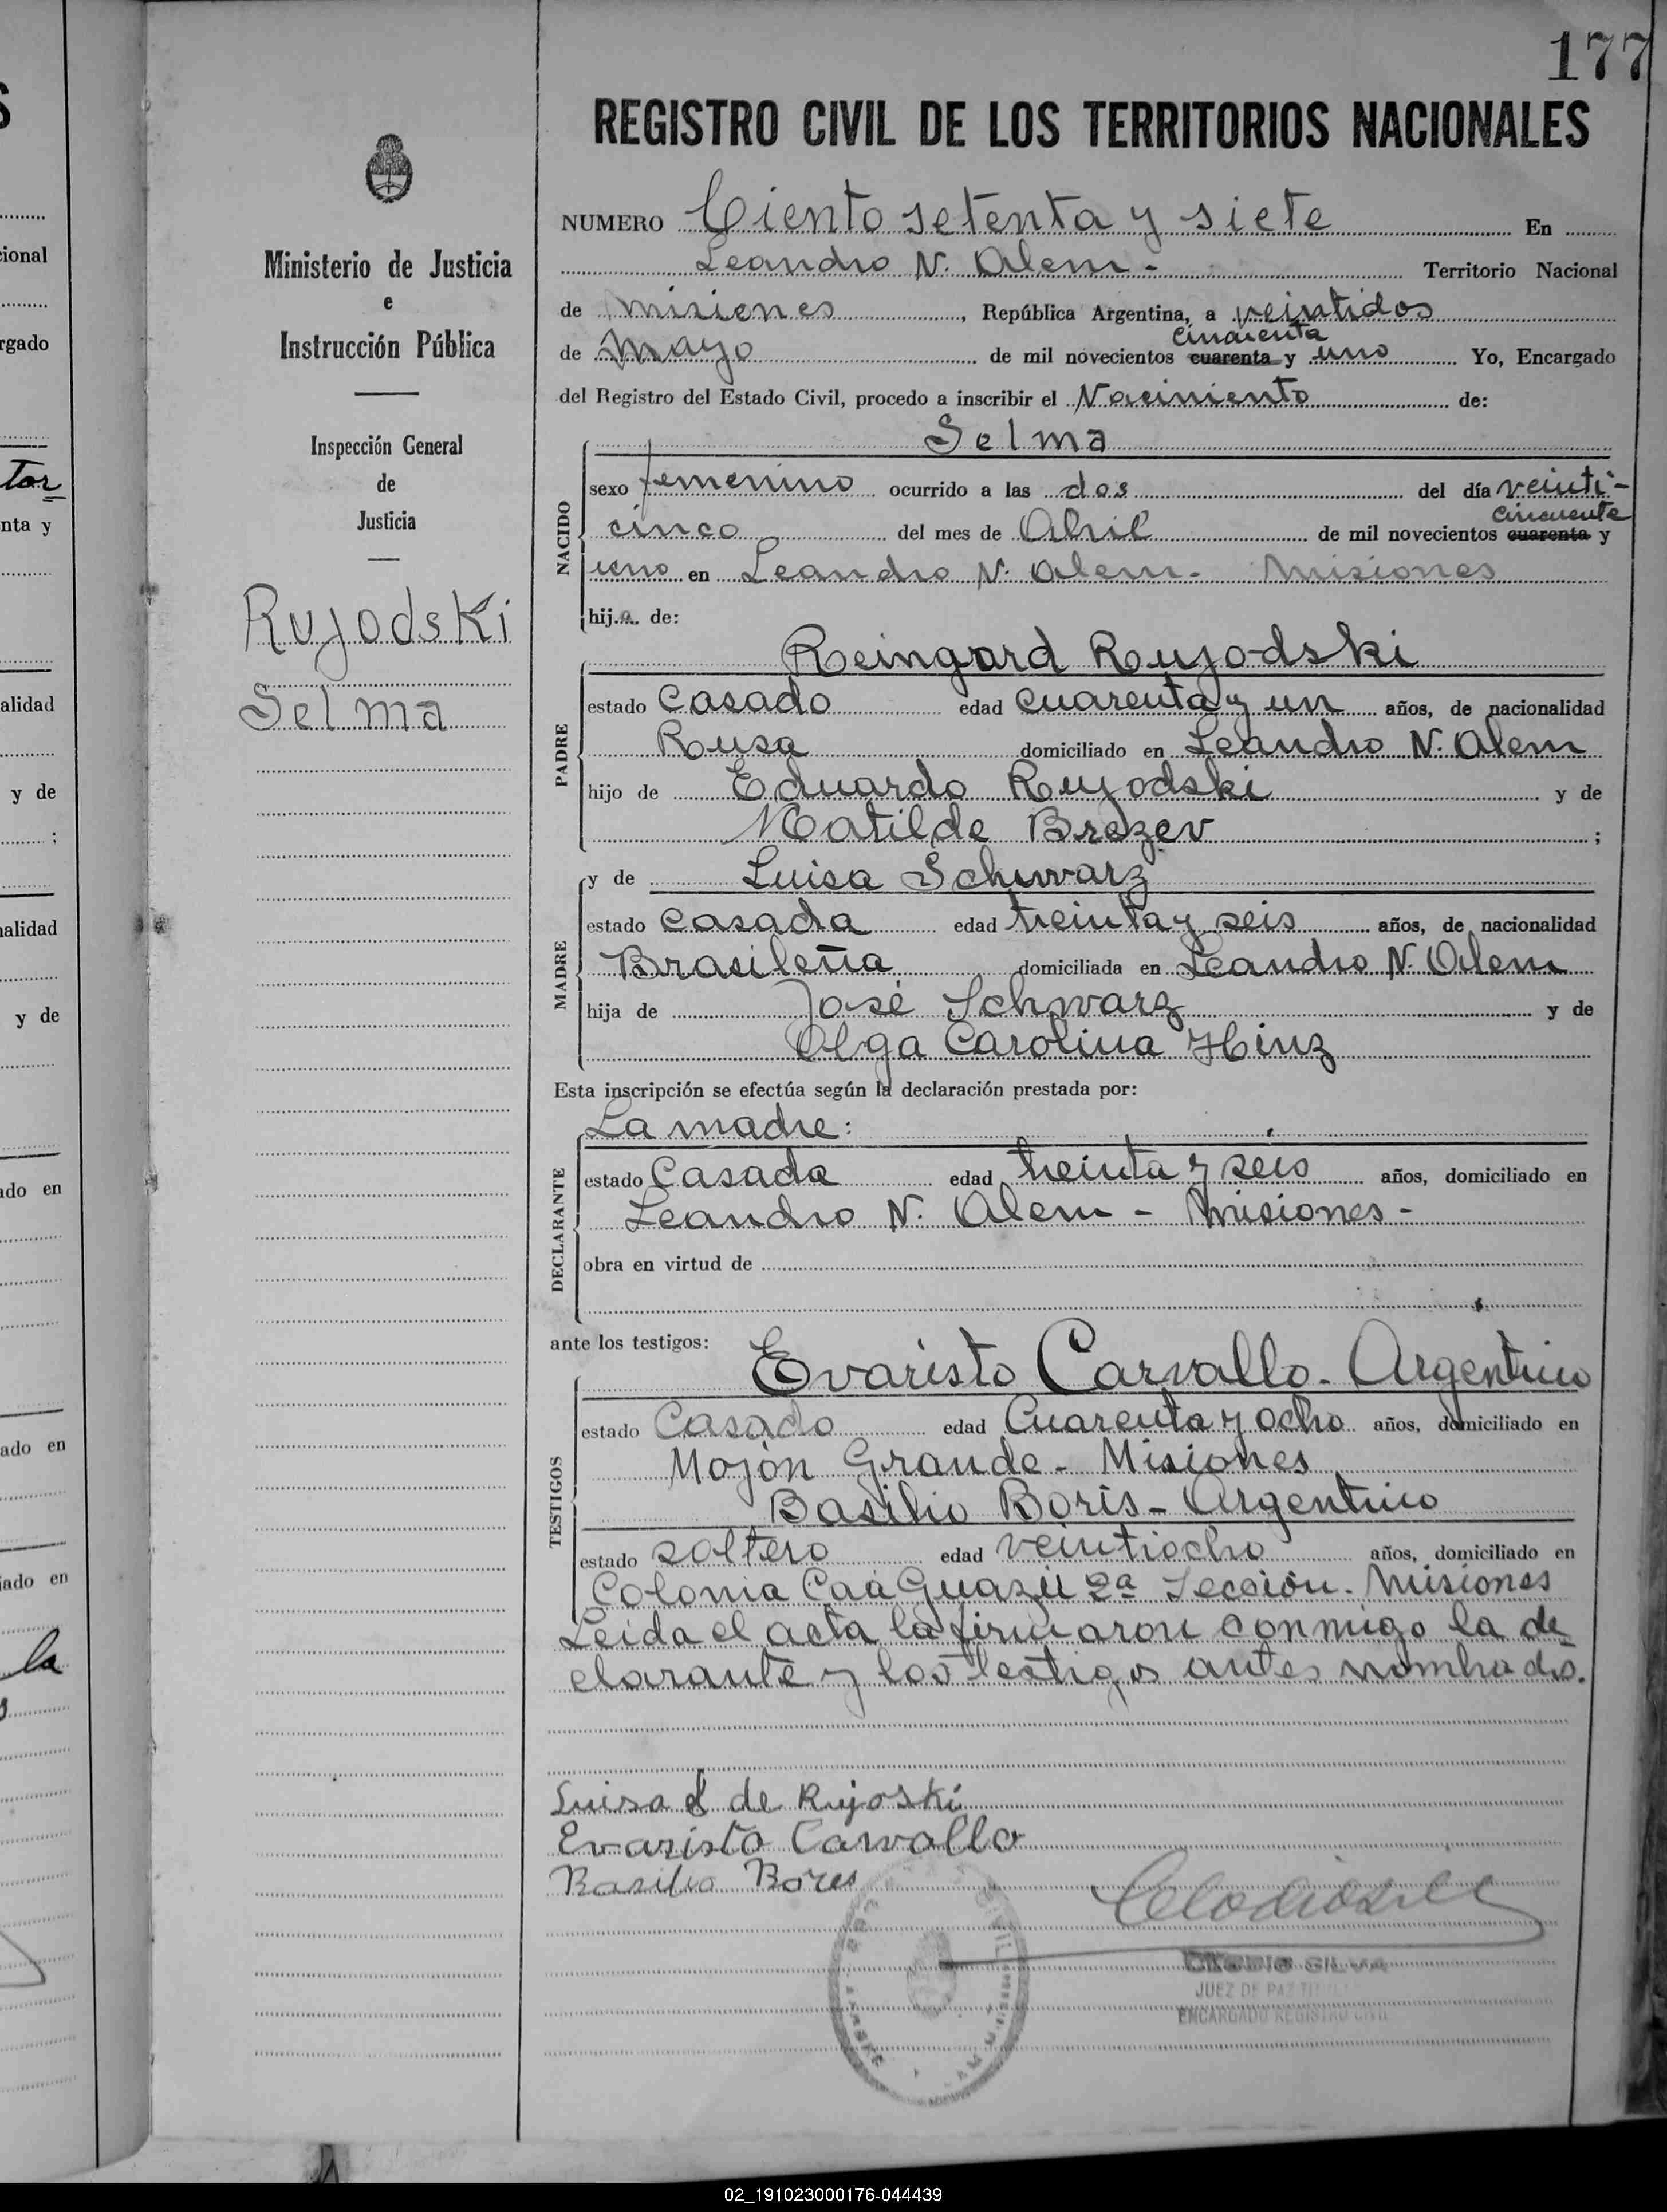 177
REGISTRO CIVIL DE LOS TERRITORIOS NACIONALES
NUMERO Ciento setenta y siete En
Leandro N. Alem.- Territorio Nacional
de Misiones, República Argentina, a veintidos
cincuenta
de Mayo de mil novecientos cuarenta y uno Yo, Encargado
del Registro del Estado Civil, procedo a inscribir el Nacimiento de:
Ministerio de Justicia
e
Instrucción Pública
Inspección General
de
Justicia
Rujodski
Selma
NACIDO
Selma
sexo femenino ocurrido a las dos del día veinti-
cincuenta
cinco del mes de Abril de mil novecientos cuarenta y
uno en Leandro N. Alem.- Misiones
hija de:
PADRE
Reingard Rujodski
estado casado edad cuarenta y un años, de nacionalidad
Rusa domiciliado en Leandro N. Alem
hijo de Eduardo Rujodski y de
Matilde Brezev ;
MADRE
y de Luisa Schwarz
estado casada edad treinta y seis años, de nacionalidad
Brasileña domiciliada en Leandro N. Alem
hija de José Schwarz y de
Olga Carolina Hinz
Esta inscripción se efectúa según la declaración prestada por:
DECLARANTE
La madre:
estado Casada edad treinta y seis años, domiciliado en
Leandro N. Alem - Misiones -
obra en virtud de
ante los testigos:
TESTIGOS
Evaristo Carvallo - Argentino
estado Casado edad Cuarenta y ocho años, domiciliado en
Mojón Grande - Misiones
Basilio Boris - Argentino
estado soltero edad veintiocho años, domiciliado en
Colonia Caá Guazú 2ª Sección. Misiones
Leida el acta la firmaron conmigo la de
clarante y los testigos antes nombrados.
Luisa S de Rujoski
Evaristo Carvallo
Basilio Bores
CLODIO SILVA
JUEZ DE PAZ
ENCARGADO REGISTRO CIVIL
02_191023000176-044439